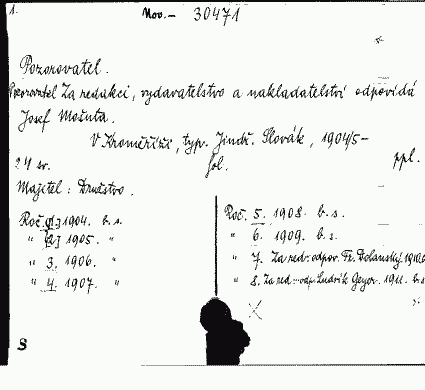 1.
Nov.- 30471
Pozorovatel.
Pozorovatel Za redakci, vydavatelstvo a nakladatelství odpovídá
Josef Mošuta.
V Kroměříži, typ. Jindř. Slovák, 1904/5-
24 sv. fol. ppl.
Majitel: Družstvo.
Roč. [1] 1904. b. s.
" [2] 1905. "
" 3. 1906. "
" 4. 1907. "
Roč. 5. 1908. b. s.
" 6. 1909. b. s.
" 7. Za red. odpov. Fr. Dolanský 1910
" 8. Za red. odp. Ludvík Geyer. 1911. b. s.
S